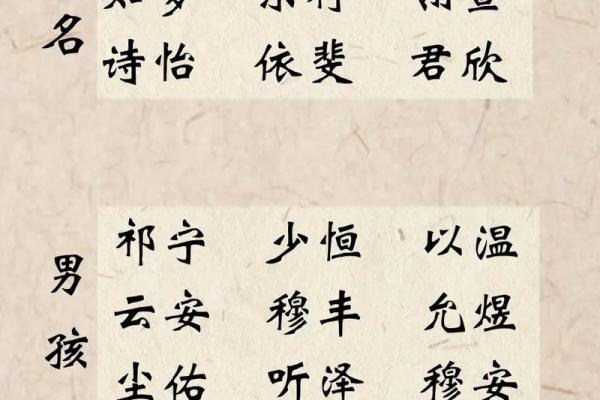 名
诗怡 依斐 君欣
男孩
祁宁 少恒 以温
云安 穆丰 允煜
尘佑 听泽 穆安